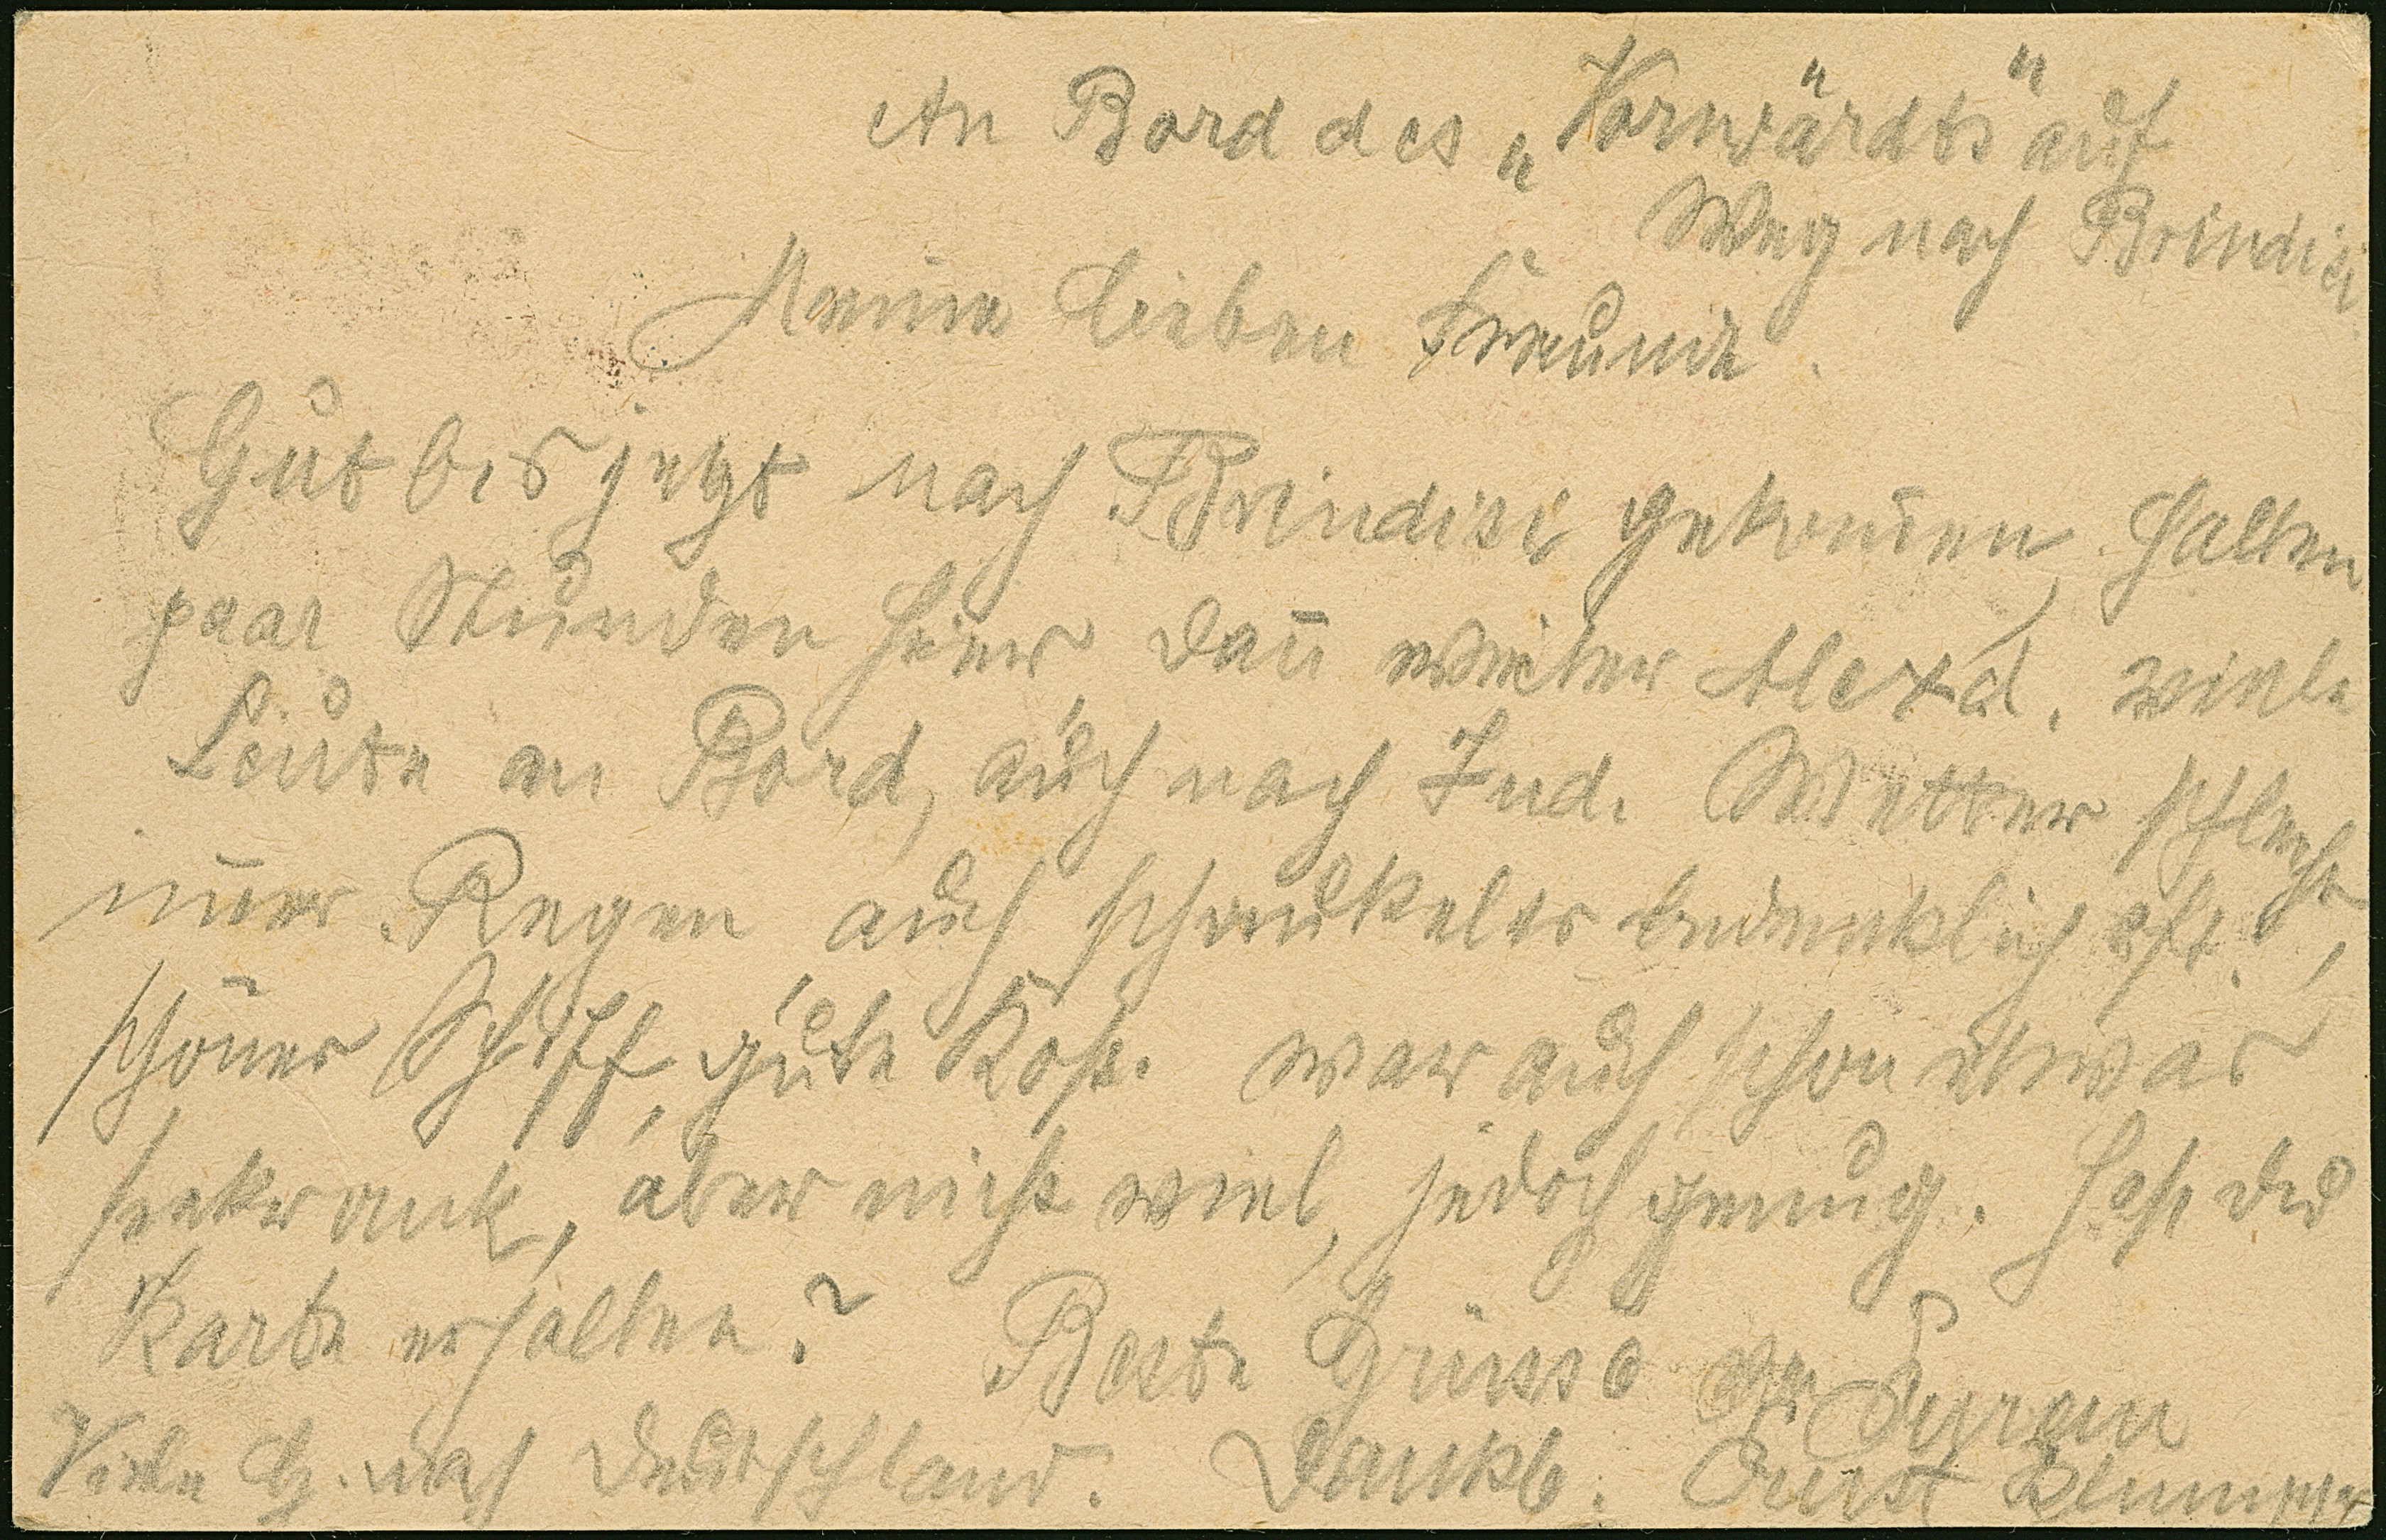 An Bord des „Vorwärdts" auf
Weg nach Brindisi
Meine lieben Freunde.
Gut bis jetzt nach Brindisi gekom̄en, halten
paar Stunden hier, dan̄ weiter Alexd. viele
Leute an Bord, auch nach Ind. Wetter schlecht
im̄er Regen auch schaukelts bedenklich oft,
schönes Schiff, gute Kost. war auch schon etwas
seekrank, aber nicht viel, jedoch genug. Hast du
Karte erhalten? Beste Grüsse
Viele G. nach Deutschland. Dankb. Ernst